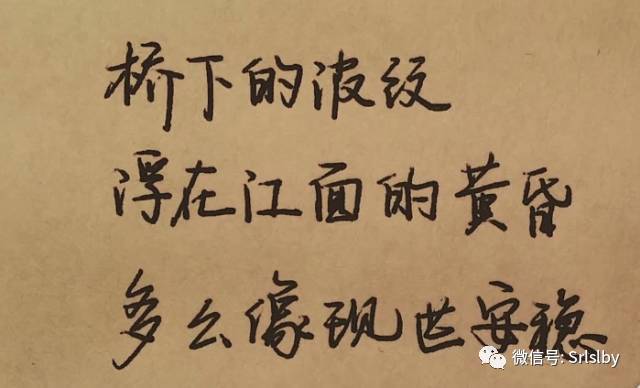 桥下的波纹
浮在江面的黄昏
多么像现世安稳
微信号: Srlslby